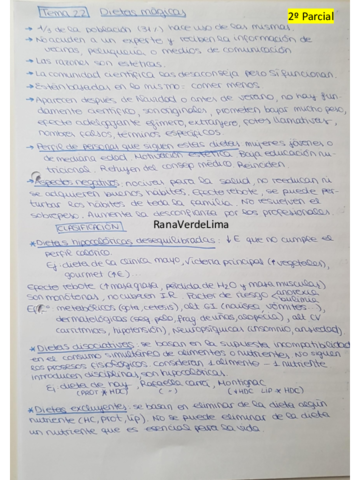 Tema 22 Dietas mágicas
2º Parcial
→ 1/3 de la población (3U/1) hace uso de las mismas.
→ No acuden a un experto y reciben la información de
vecinos, peluquería, o medios de comunicación
→ Las razones son estéticas.
→ La comunidad científica las desaconseja pero sí funcionan.
→ Están basadas en lo mismo: comer menos
→ Aparecen después de Navidad o antes de verano, no hay fun-
damento científico, son originales, prometen bajar mucho peso,
efecto adelgazante efímero, extranjero, fotos llamativas,
nombres falsos, términos específicos.
→ Perfil de persona que siguen estas dietas mujeres jóvenes o
de mediana edad. Motivación estética. Baja educación nu-
tricional. Rehuyen del consejo médico. Reinciden.
Aspectos negativos: nocivas para la salud, no reeducan ni
se adquieren buenos hábitos. Efecto rebote, se puede per-
turbar los hábitos de toda la familia. No resuelven el
sobrepeso. Aumenta la desconfianza por los profesionales.
CLASIFICACIÓN
RanaVerdeLima
* Dietas hipocalóricas desequilibradas: ↓E que no cumple el
perfil calórico
Ej: dieta de la clínica mayo, Victoria principal (↑vegetales),
gourmet (↑E)
Efecto rebote (↑masa grasa, pérdida de H2O y masa muscular)
son monótonas, no cubren I.R. Factor de riesgo anorexia
bulimia
metabólicas (gota, cetosis), alt GI (náuseas vómitos),
dermatológicas (seq. pelo, frag de uñas, alopecia), alt CV
(arritmias, hipotensión), Neuropsíquicas (insomnio, ansiedad)
* Dietas disociativas: se basan en la supuesta incompatibilidad
en el consumo simultáneo de alimentos o nutrientes. No siguen
los procesos fisiológicos consideran 1 alimento - 1 nutriente
introducen disciplinas, son hipocalóricas.
Ej: dieta de hay, Rafaella carra, Montignac
(PROT * HDC) (-) (+HDC LIP * HDC)
* Dietas excluyentes: se basan en eliminar de la dieta algún
nutriente (HC, Prot, Lip). No se puede eliminar de la dieta
un nutriente que es esencial para la vida